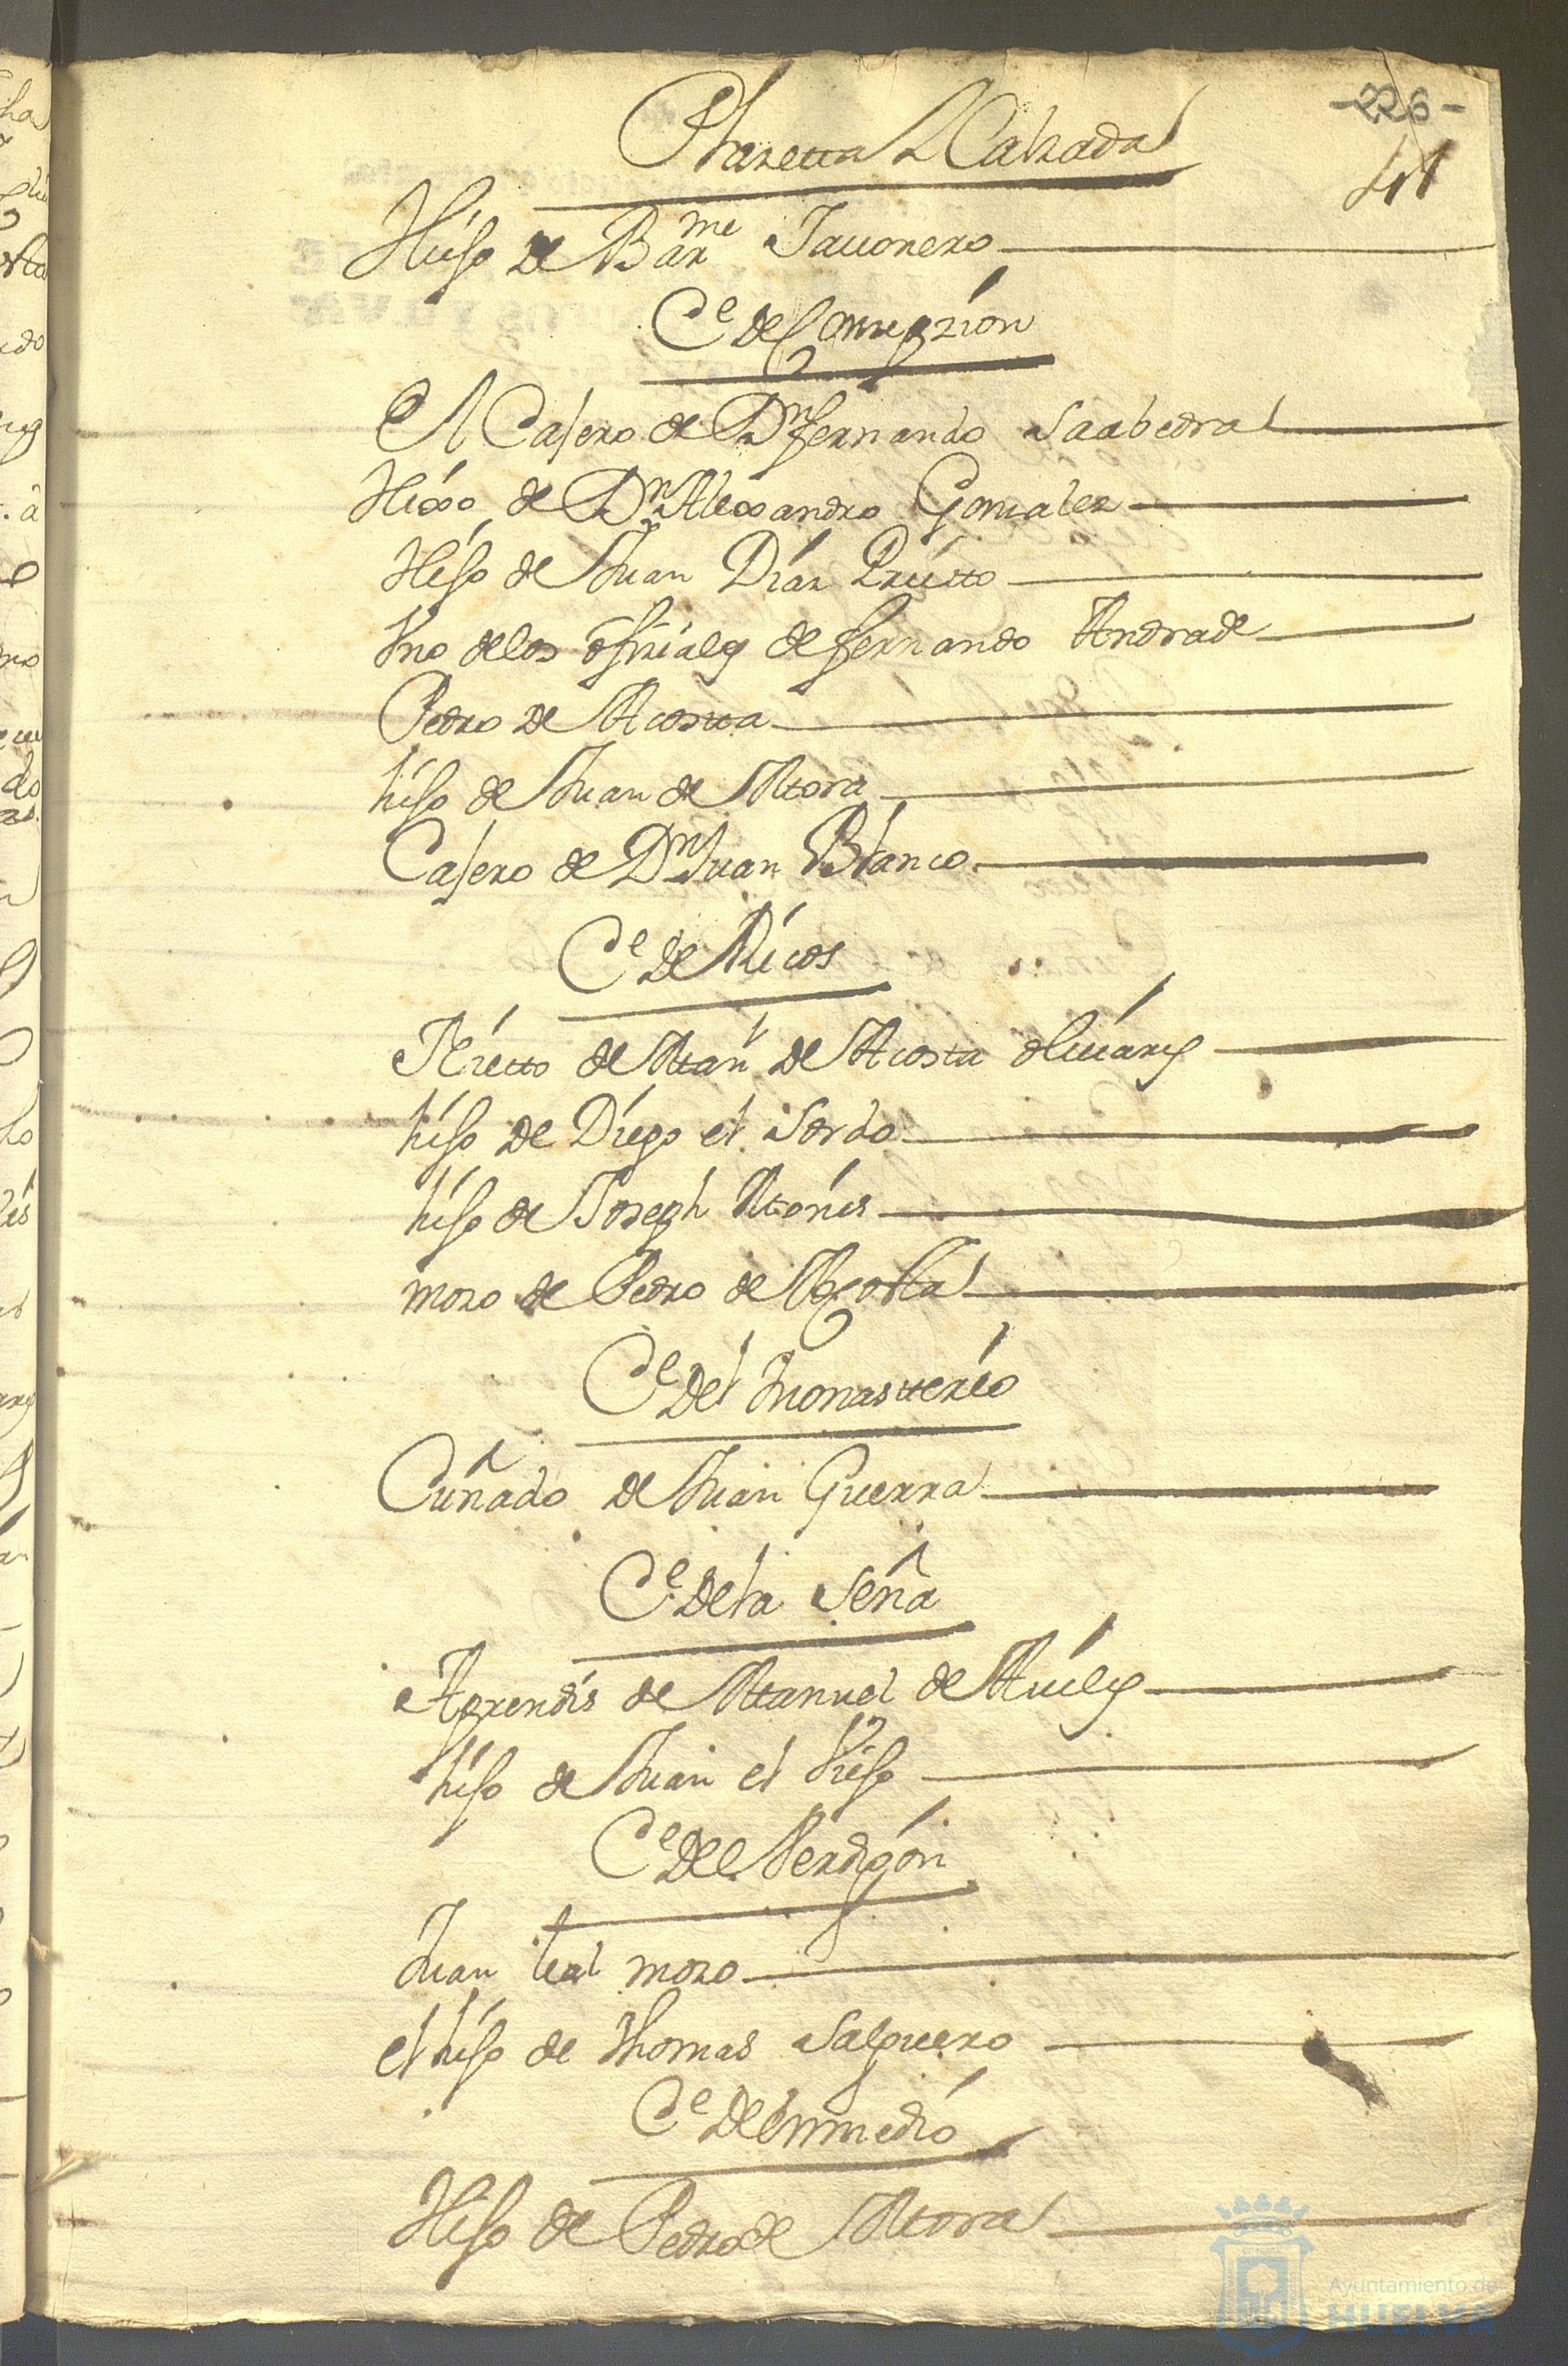 -226-
41
Plazetta L Calzada
Hijo de Barme Jauonero
Ce de Consepzion
El Casero de Dn fernando Saabedra
Hixo de Dn Alexandro Gonzalez
Hijo de Juan Diaz Prietto
Vno de los ofiziales de fernando Andrade
Pedro de Acosta
hijo de Juan de Mora
Casero de Dn Juan Blanco
Ce de Ricos
Nietto de Man de Acosta oliuares
hijo de Diego el Sordo
hijo de Joseph Monis
mozo de Pedro de Acosta
Ce del monasterio
Cuñado de Juan Guerra
Ce de la Seña
Aprendis de Manuel de Auiles
hijo de Juan el Viejo
Ce del Perdigon
Juan leal mozo
el hijo de thomas Salguero
Ce de Enmedio
Hijo de Pedro de Mora
Ayuntamiento de
HUELVA